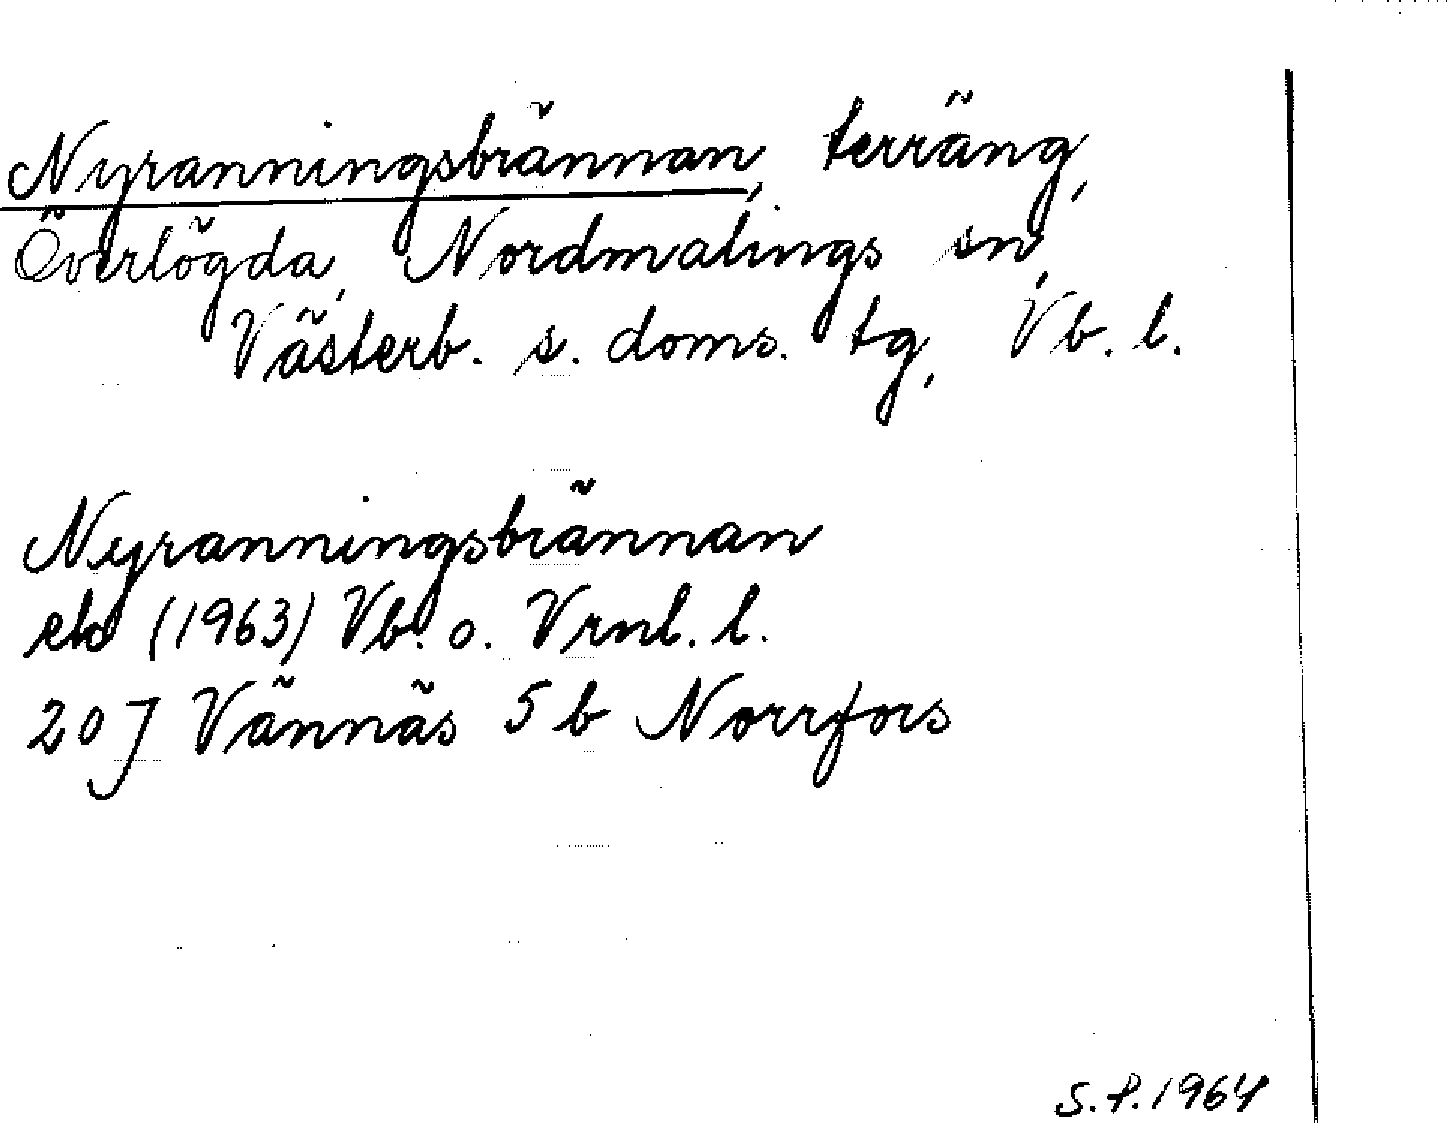 Nyranningsbrännan, terräng,
Överlögda, Nordmalings sn,
Västerb. s. doms. tg, Vb. l.
Nyranningsbrännan
ek (1963) Vb. o. Vrnl. l.
20 J Vännäs 5 b Norrfors
S.P. 1964